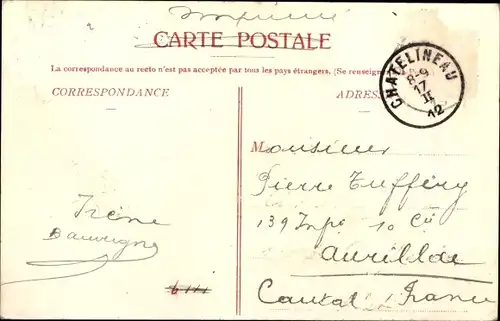 Imprimé
CARTE POSTALE
La correspondance au recto n'est pas acceptée par tous les pays étrangers. (Se renseign
CORRESPONDANCE
ADRES
CHATELINEAU
8-9
17
II
12
Monsieur
Pierre Tuffery
139 Inf^e 10 C^ie
Aurillac
Cantal France
Irène
Dauvergne